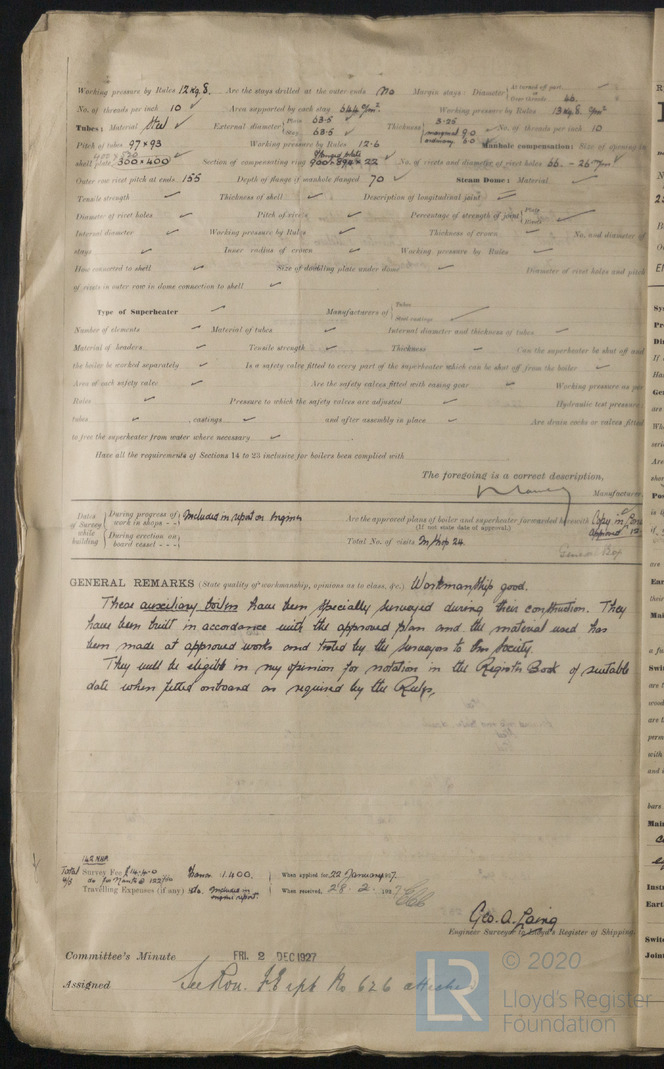 Working pressure by Rules 12 Kg. S. Are the stays drilled at the outer ends No Margin stays: Diameter { At turned off part, or Over threads 66.
No. of threads per inch 10 Area supported by each stay Working pressure by Rules
Tubes: Material Steel External diameter { Plain 63.5 Stay 63.5 Thickness { 3.25 marginal 9.0 ordinary 6.0 No. of threads per inch 10
Pitch of tubes 97 x 93 Working pressure by Rules 12.6 Manhole compensation: Size of opening in
shell plate 300 x 400 Section of compensating ring No. of rivets and diameter of rivet holes
Outer row rivet pitch at ends 155 Depth of flange if manhole flanged 70 Steam Dome: Material
Tensile strength Thickness of shell Description of longitudinal joint
Diameter of rivet holes Pitch of rivets Percentage of strength of joint { Plate Rivets
Internal diameter Working pressure by Rules Thickness of crown No. and diameter of
stays Inner radius of crown Working pressure by Rules
How connected to shell Size of doubling plate under dome Diameter of rivet holes and pitch
of rivets in outer row in dome connection to shell
Type of Superheater Manufacturers of { Tubes Steel castings
Number of elements Material of tubes Internal diameter and thickness of tubes
Material of headers Tensile strength Thickness Can the superheater be shut off and
the boiler be worked separately Is a safety valve fitted to every part of the superheater which can be shut off from the boiler
Area of each safety valve Are the safety valves fitted with easing gear Working pressure as per
Rules Pressure to which the safety valves are adjusted Hydraulic test pressure:
tubes , castings and after assembly in place Are drain cocks or valves fitted
to free the superheater from water where necessary
Have all the requirements of Sections 14 to 23 inclusive for boilers been complied with
The foregoing is a correct description,
Manufacturer.
Dates of Survey while building { During progress of work in shops - - Included in report on Engines Are the approved plans of boiler and superheater forwarded herewith Copy
(If not state date of approval.) approved
During erection on board vessel - - - Total No. of visits In shop 24.
GENERAL REMARKS (State quality of workmanship, opinions as to class, &c.) Workmanship good.
These auxiliary boilers have been specially surveyed during their construction. They
have been built in accordance with the approved plan and the material used has
been made at approved works and tested by the Surveyors to this Society.
They will be eligible in my opinion for notation in the Register Book of suitable
date when fitted onboard as required by the Rules.
Total Survey Fee £14-4-0 1.400. When applied for, 22 January
Travelling Expenses (if any) do. Included in engine report. When received, 28. 2. 192
Geo. A. Laing
Engineer Surveyor to Lloyd's Register of Shipping.
Committee's Minute FRI. 2 DEC 1927
Assigned See Rou. F.E. rpt No 626 attached
© 2020
LR
Lloyd's Register
Foundation